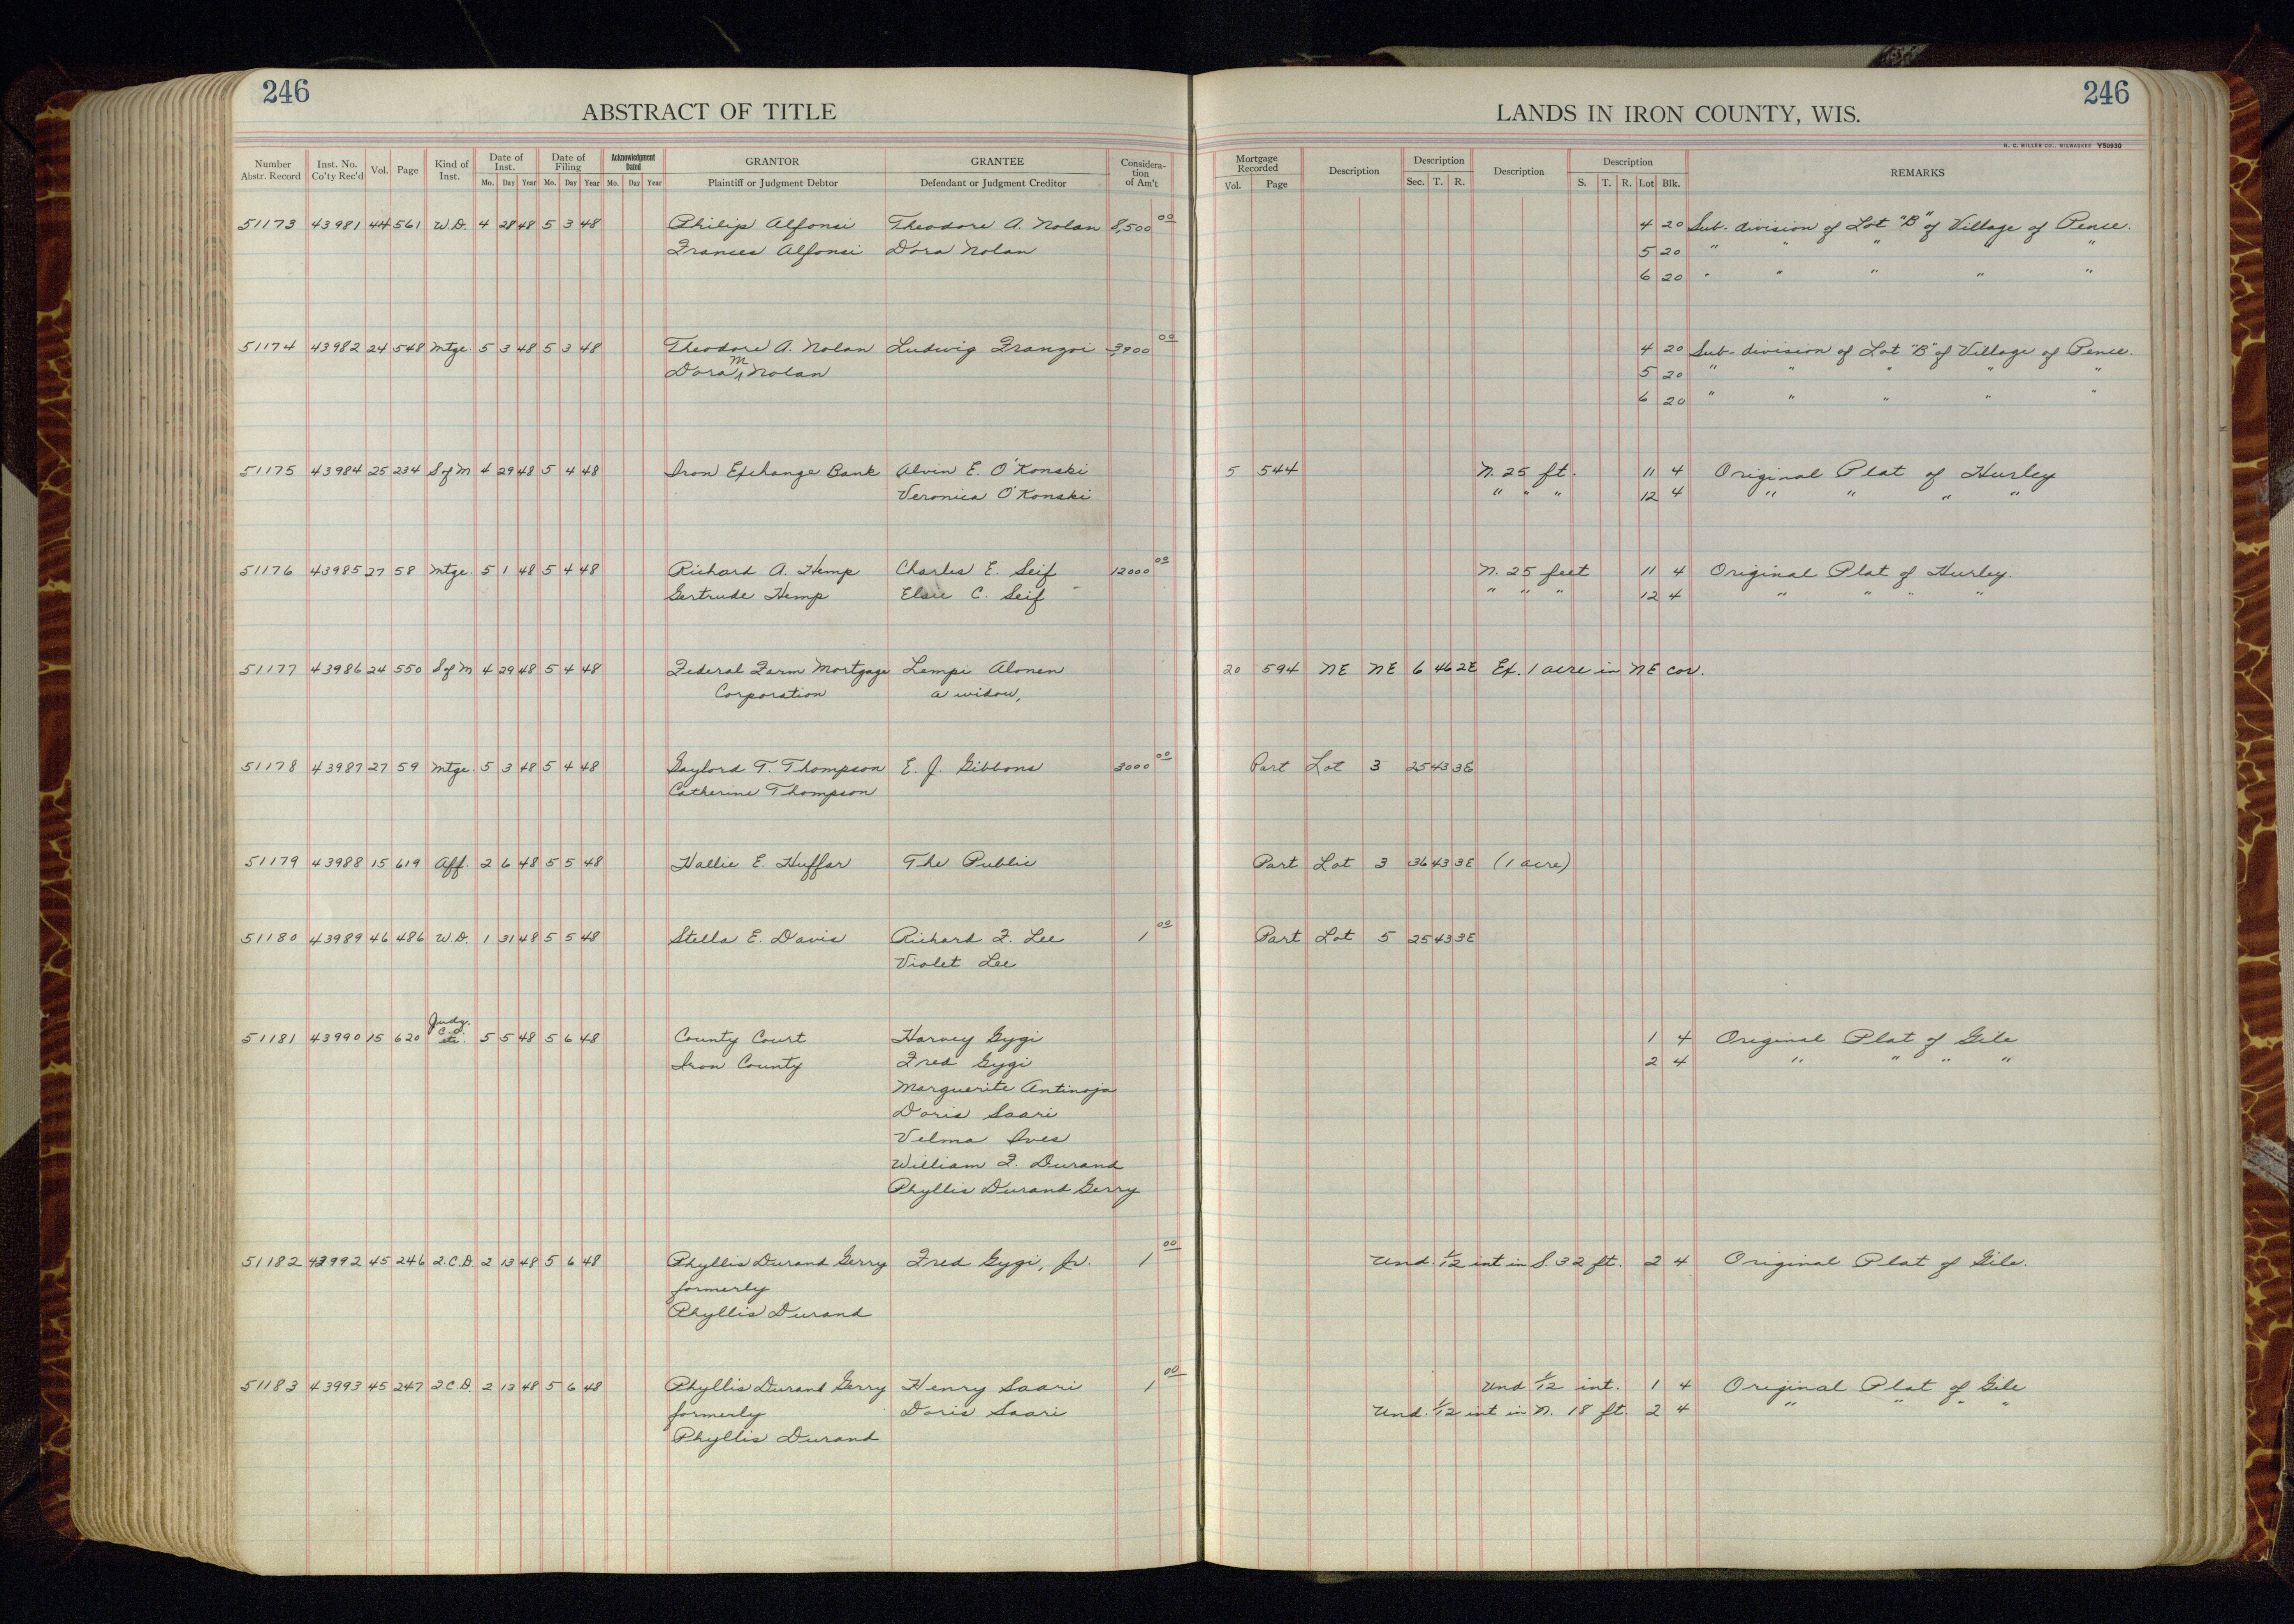 246
ABSTRACT OF TITLE
LANDS IN IRON COUNTY, WIS.
246
H. C. MILLER CO., MILWAUKEE Y50930
Number Abstr. Record Inst. No. Co'ty Rec'd Vol. Page Kind of Inst. Date of Inst. Mo. Day Year Date of Filing Mo. Day Year Acknowledgment Dated Mo. Day Year GRANTOR Plaintiff or Judgment Debtor GRANTEE Defendant or Judgment Creditor Considera-tion of Am't Mortgage Recorded Vol. Page Description Description Sec. T. R. Description Description S. T. R. Lot Blk. REMARKS
51173 43981 44 561 W.D. 4 28 48 5 3 48 Philip Alfonsi Theodore A. Nolan 8,500 00 4 20 Sub-division of Lot "B" of Village of Pence.
Frances Alfonsi Dora Nolan 5 20 " " " " "
6 20 " " " " "
51174 43982 24 548 Mtge. 5 3 48 5 3 48 Theodore A. Nolan Ludwig Franzoi 3,900 00 4 20 Sub-division of Lot "B" of Village of Pence.
Dora M Nolan 5 20 " " " " "
6 20 " " " " "
51175 43984 25 234 S of M 4 29 48 5 4 48 Iron Exchange Bank Alvin E. O'Konski 5 544 N. 25 ft. 11 4 Original Plat of Hurley
Veronica O'Konski " " " 12 4 " " " "
51176 43985 27 58 Mtge. 5 1 48 5 4 48 Richard A. Hemp Charles E. Seif 12000 00 N. 25 feet 11 4 Original Plat of Hurley.
Gertrude Hemp Elsie C. Seif " " " 12 4 " " " "
51177 43986 24 550 S of M 4 29 48 5 4 48 Federal Farm Mortgage Lempi Alonen 20 594 NE NE 6 46 2E Ex. 1 acre in NE cor.
Corporation a widow,
51178 43987 27 59 Mtge. 5 3 48 5 4 48 Gaylord T. Thompson E. J. Gibbons 3000 00 Part Lot 3 25 43 3E
Catherine Thompson
51179 43988 15 619 Aff. 2 6 48 5 5 48 Hallie E. Huffar The Public Part Lot 3 36 43 3E (1 acre)
51180 43989 46 486 W.D. 1 31 48 5 5 48 Stella E. Davis Richard F. Lee 1 00 Part Lot 5 25 43 3E
Violet Lee
51181 43990 15 620 Judg. 5 5 48 5 6 48 County Court Harvey Gygi 1 4 Original Plat of Gile
Iron County Fred Gygi 2 4 " " " "
Marguerite Antinoja
Doris Saari
Velma Ives
William F. Durand
Phyllis Durand Gerry
51182 43992 45 246 2.C.D. 2 13 48 5 6 48 Phyllis Durand Gerry Fred Gygi, Jr. 1 00 Und. 1/12 int in S. 32 ft. 2 4 Original Plat of Gile.
formerly
Phyllis Durand
51183 43993 45 247 2.C.D. 2 13 48 5 6 48 Phyllis Durand Gerry Henry Saari 1 00 Und 1/12 int. 1 4 Original Plat of Gile
formerly Doris Saari Und. 1/12 int in N. 18 ft. 2 4 " " " "
Phyllis Durand